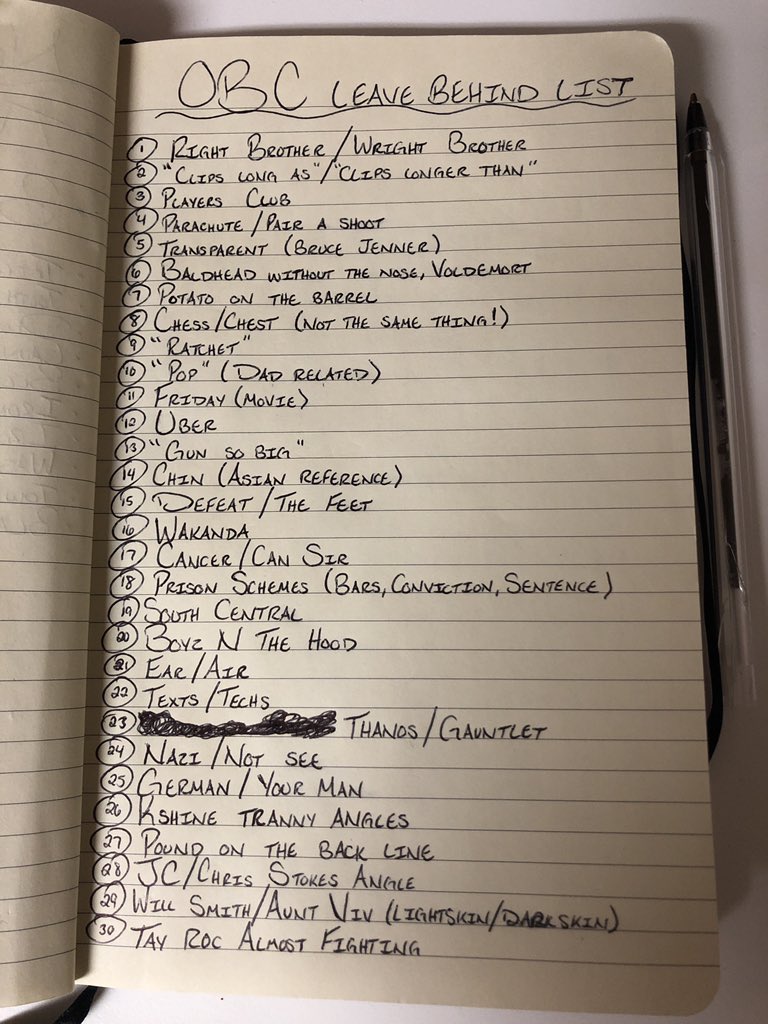 OBC LEAVE BEHIND LIST
1 RIGHT BROTHER / WRIGHT BROTHER
2 "CLIPS LONG AS"/"CLIPS LONGER THAN"
3 PLAYERS CLUB
4 PARACHUTE / PAIR A SHOOT
5 TRANSPARENT (BRUCE JENNER)
6 BALDHEAD WITHOUT THE NOSE, VOLDEMORT
7 POTATO ON THE BARREL
8 CHESS/CHEST (NOT THE SAME THING!)
9 "RATCHET"
10 "POP" (DAD RELATED)
11 FRIDAY (MOVIE)
12 UBER
13 "GUN SO BIG"
14 CHIN (ASIAN REFERENCE)
15 DEFEAT / THE FEET
16 WAKANDA
17 CANCER / CAN SIR
18 PRISON SCHEMES (BARS, CONVICTION, SENTENCE)
19 SOUTH CENTRAL
20 BOYZ N THE HOOD
21 EAR/AIR
22 TEXTS/TECHS
23 THANOS/GAUNTLET
24 NAZI / NOT SEE
25 GERMAN / YOUR MAN
26 KSHINE TRANNY ANGLES
27 POUND ON THE BACK LINE
28 JC/CHRIS STOKES ANGLE
29 WILL SMITH/AUNT VIV (LIGHTSKIN/DARKSKIN)
30 TAY ROC ALMOST FIGHTING